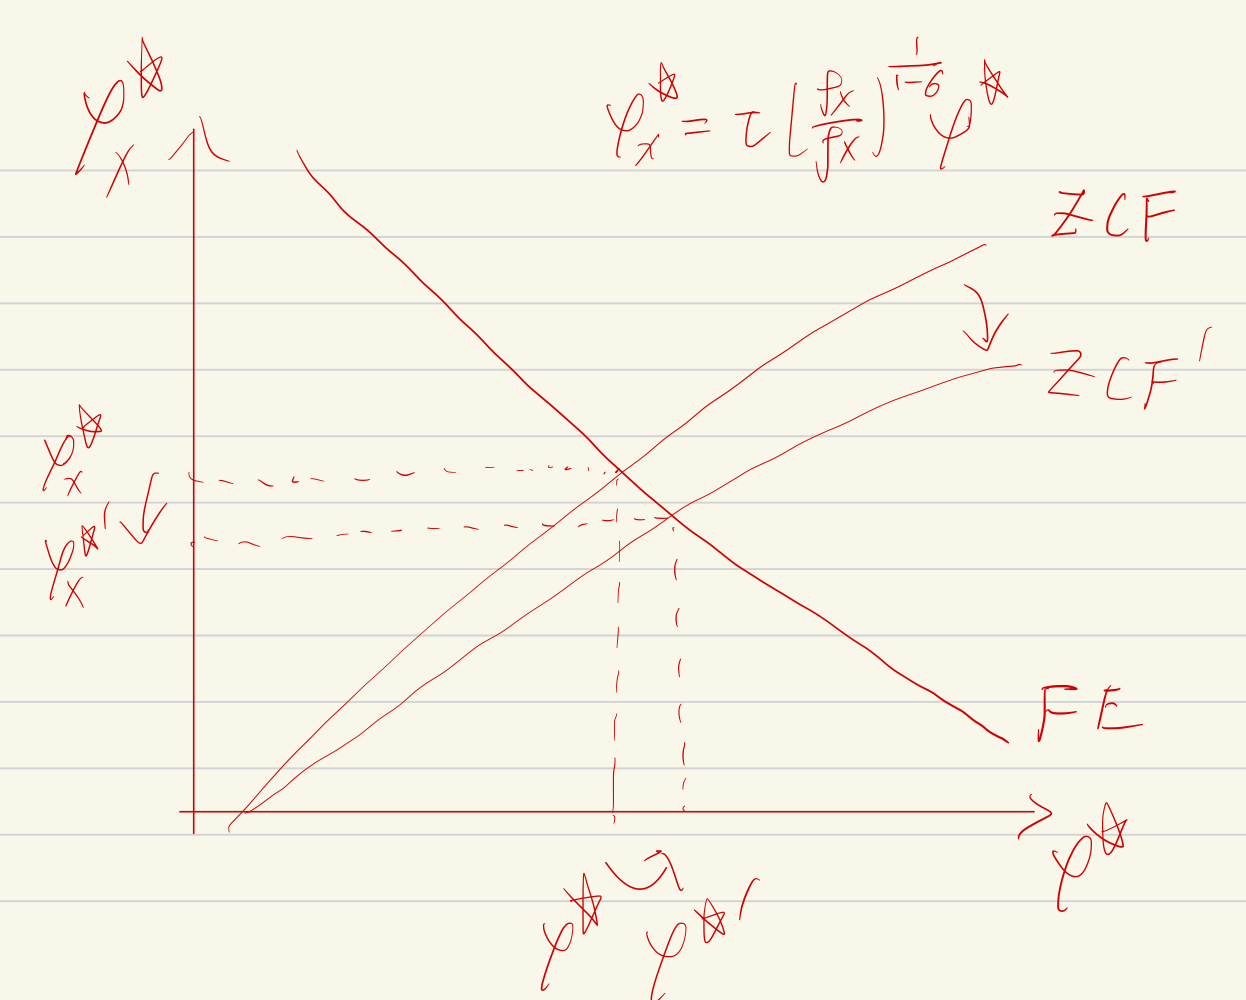 φ*x
φ*x = τ (fx/fx)^(1/(1-6)) φ*
ZCF
ZCF'
φ*x
φ*'x
FE
φ*
φ* φ*'